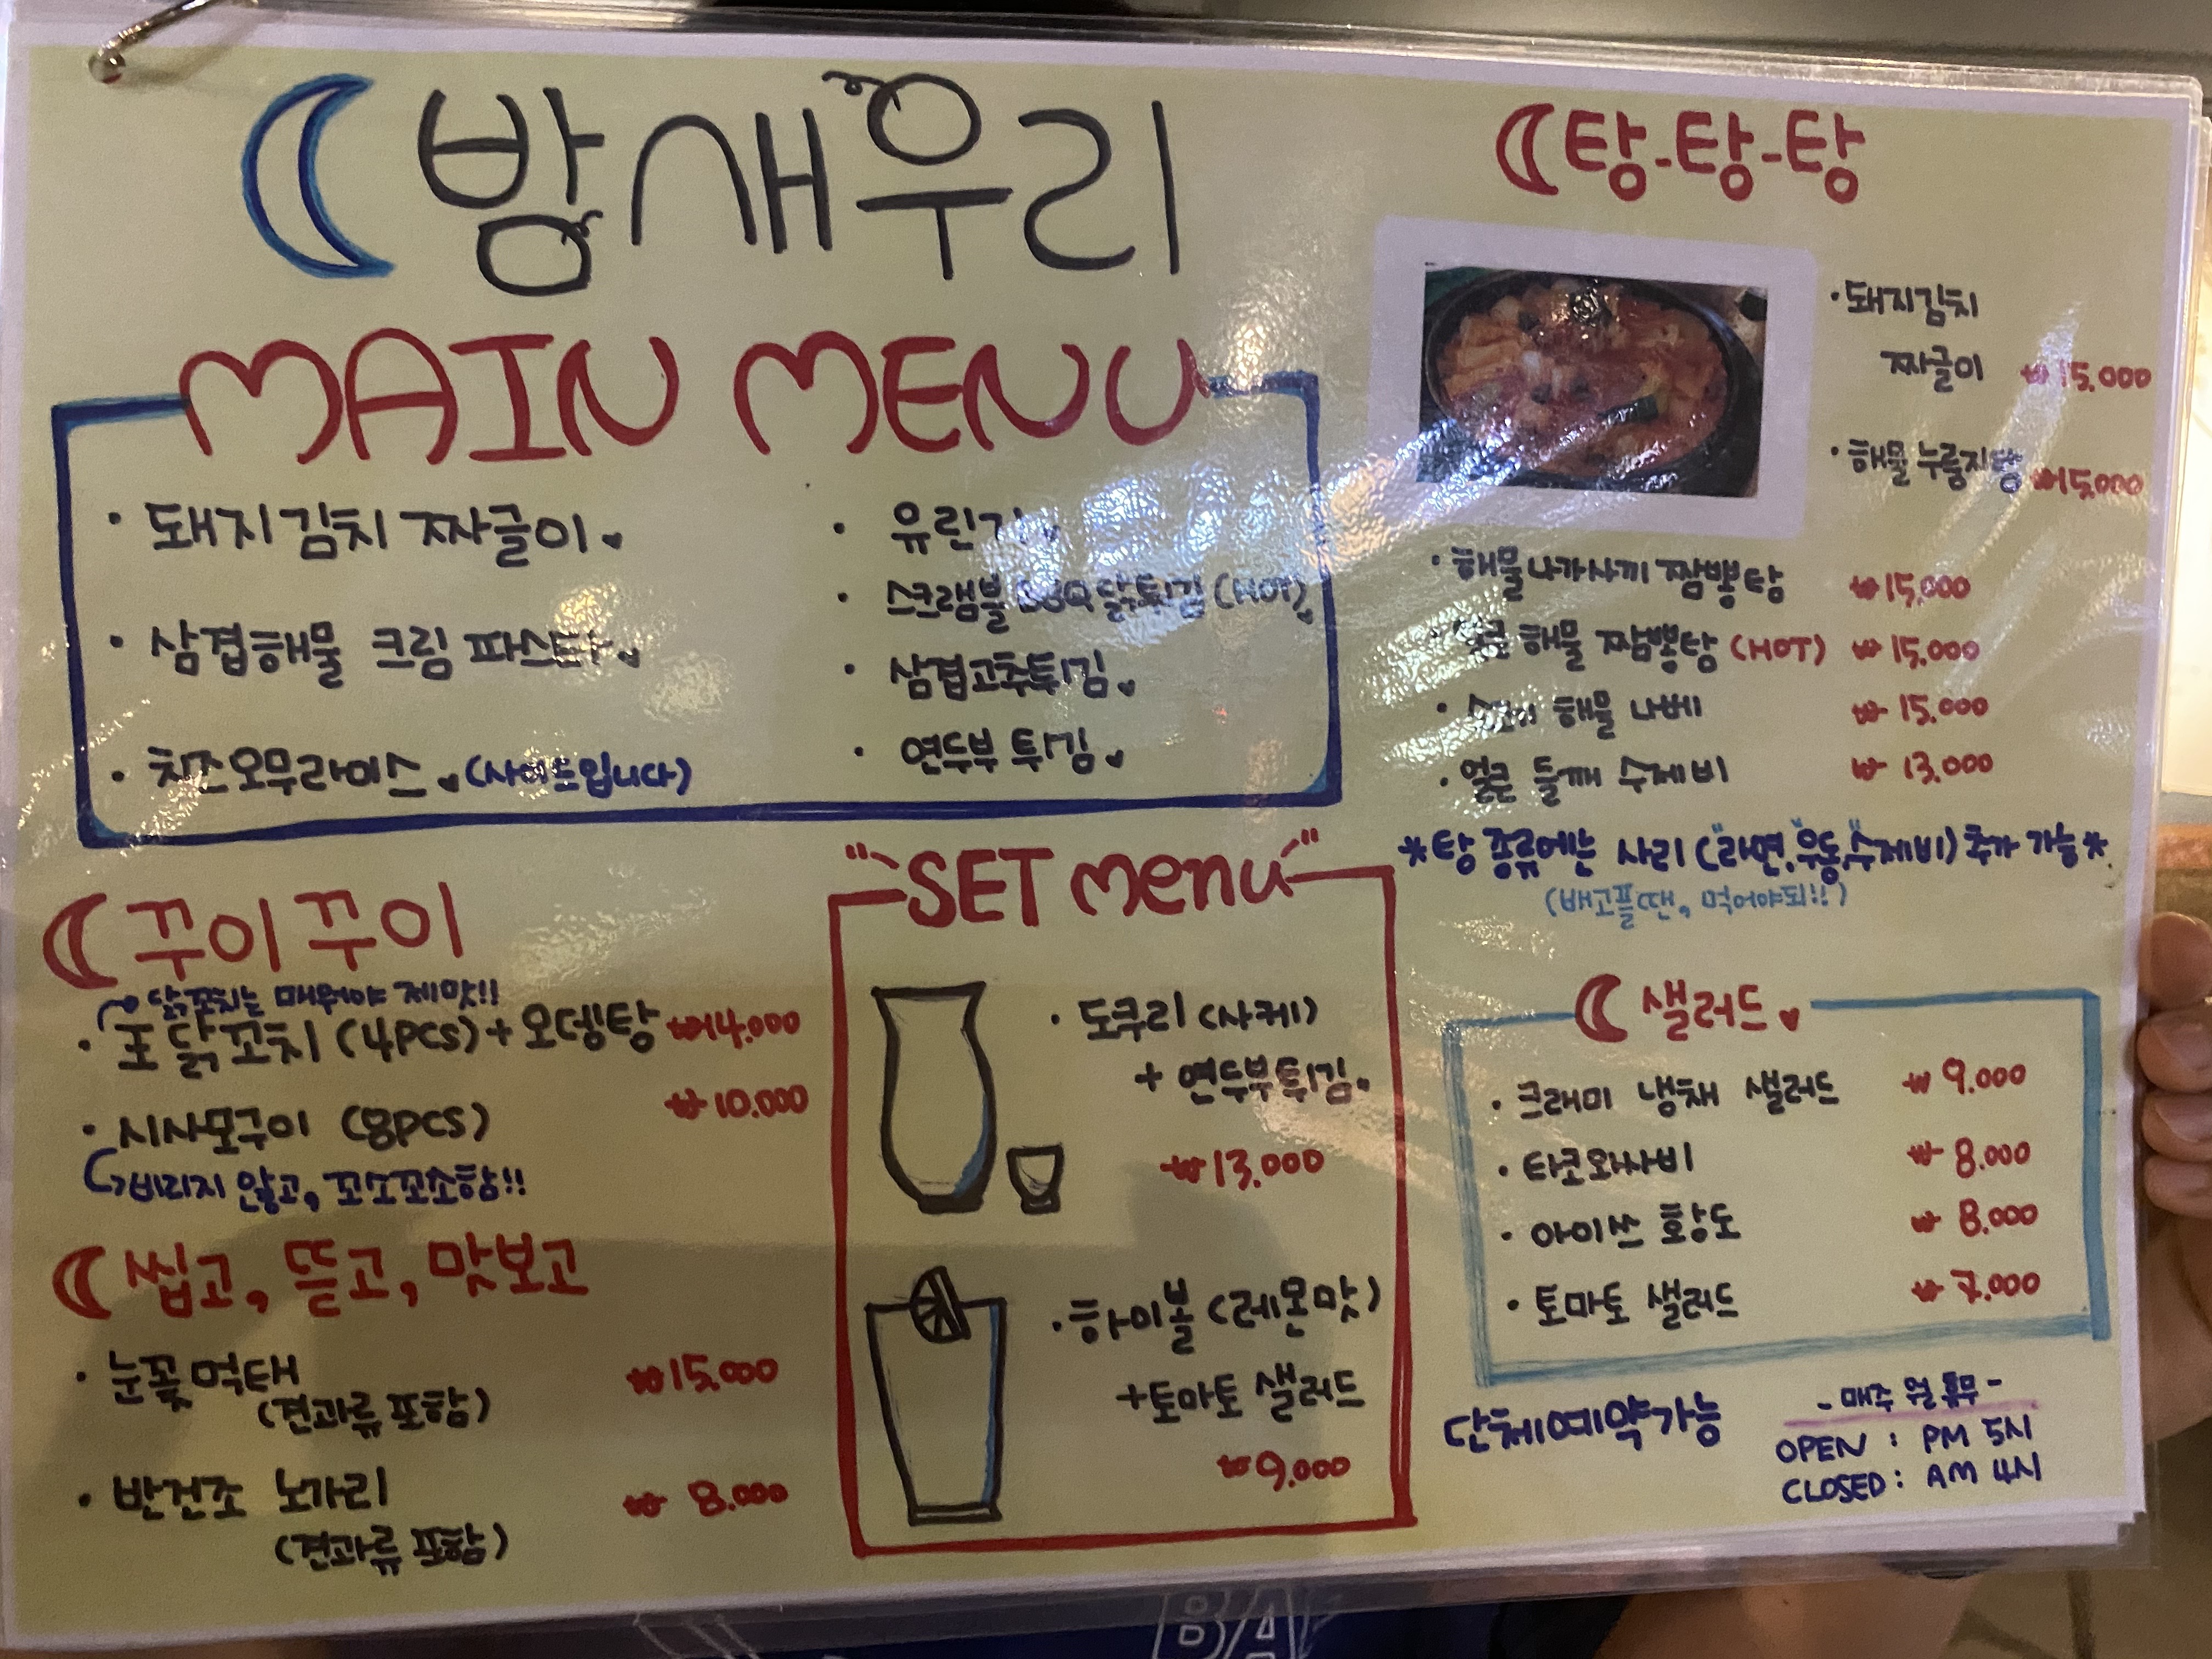 밤새우리
MAIN MENU
· 돼지김치 짜글이
· 삼겹해물 크림 파스타
· 치즈오무라이스 (사이드입니다)
· 유린기
· 스크램블 BBQ 닭튀김 (HOT)
· 삼겹고추튀김
· 연두부 튀김
꾸이꾸이
닭꼬치는 매워야 제맛!!
· 포 닭꼬치 (4pcs) + 오뎅탕 ₩14.000
· 시샤모구이 (8pcs) ₩10.000
비리지 않고, 꼬소꼬소함!!
씹고, 뜯고, 맛보고
· 눈꽃먹태 ₩15.000
(견과류 포함)
· 반건조 노가리 ₩ 8.000
(견과류 포함)
"SET menu"
· 도쿠리 (사케)
+ 연두부튀김
₩13,000
· 하이볼 (레몬맛)
+토마토 샐러드
₩9,000
탕-탕-탕
· 돼지김치
짜글이 ₩15.000
· 해물누룽지탕 ₩15,000
· 해물나가사끼 짬뽕탕 ₩15,000
· 얼큰 해물 짬뽕탕 (HOT) ₩15.000
· 해물 나베 ₩15.000
· 얼큰 들깨 수제비 ₩ 13.000
*탕 종류에는 사리 ("라면, 우동, 수제비") 추가 가능*
(배고플땐, 먹어야되!!)
샐러드
· 크래미 냉채 샐러드 ₩ 9.000
· 타코와사비 ₩ 8.000
· 아이쓰 황도 ₩ 8.000
· 토마토 샐러드 ₩ 7.000
단체예약가능
- 매주 월 휴무 -
OPEN : PM 5시
CLOSED : AM 4시
BA